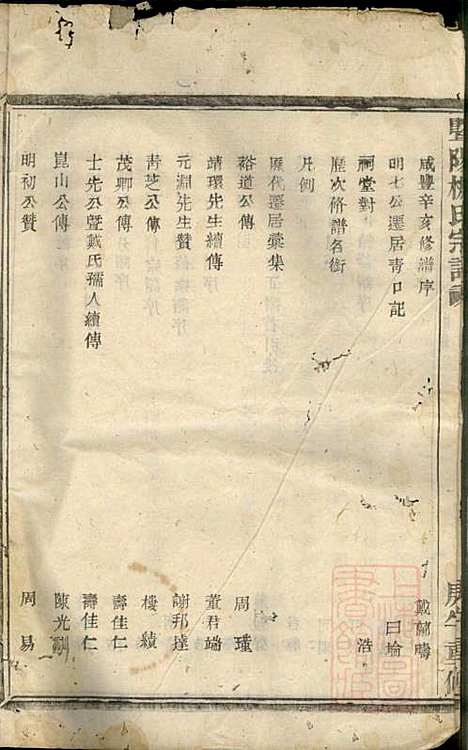 暨陽楊氏宗譜
庚午重修
咸豐辛亥修譜序 戴
明七公遷居青口記 曰
祠堂對 浩
歷次脩譜名銜
凡例
歷代遷居彙集
裕道公傳 周瑾
靖環先生續傳 董君端
元淵先生贊 謝邦達
青芝公傳 樓績
茂卿公傳 壽佳仁
士先公暨戴氏孺人續傳 壽佳仁
崑山公傳 陳光
明初公贊 周易